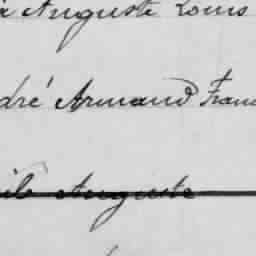 Auguste Louis
dré Armand Fran
Auguste